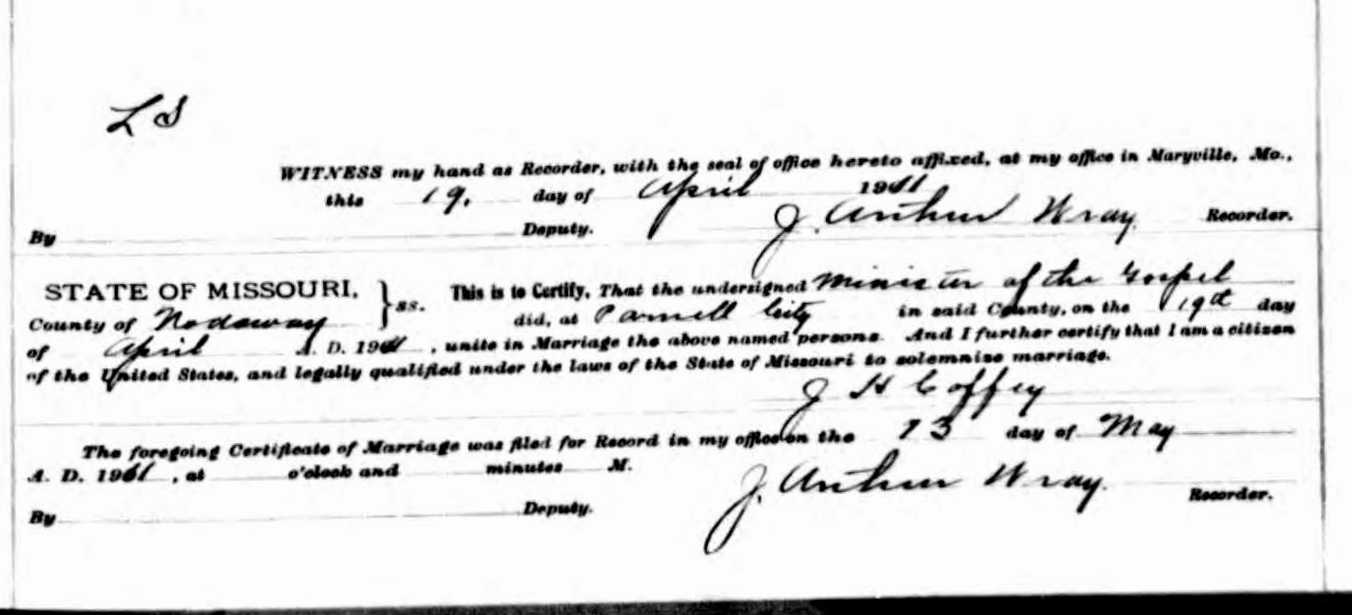 L S
WITNESS my hand as Recorder, with the seal of office hereto affixed, at my office in Maryville, Mo.,
this 19. day of April 1911
By Deputy. J. Arthur Wray. Recorder.
STATE OF MISSOURI, } ss. This is to Certify, That the undersigned Minister of the Gospel
County of Nodaway did, at Parnell City in said County, on the 19th day
of April A. D. 1911, unite in Marriage the above named persons. And I further certify that I am a citizen
of the United States, and legally qualified under the laws of the State of Missouri to solemnize marriage.
J H Coffey
The foregoing Certificate of Marriage was filed for Record in my office on the 13 day of May
A. D. 1911, at o'clock and minutes M.
J. Arthur Wray.
By Deputy. Recorder.